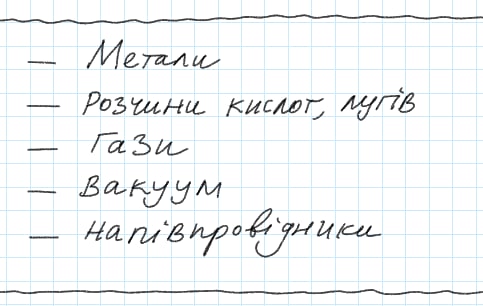 — Метали
— Розчини кислот, лугів
— Гази
— Вакуум
— Напівпровідники